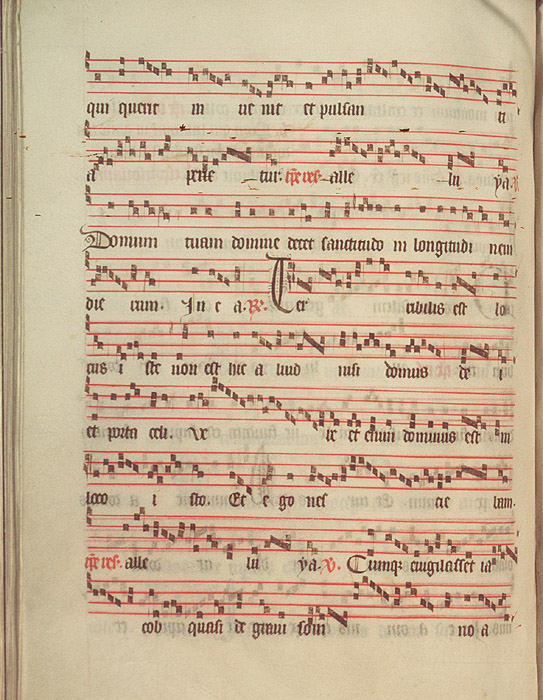 qui querit in ue nit et pulsan ti
a perie tur tpe res. alle lu ya. ℣
Domum tuam domine decet sanctitudo in longitudi nem
die rum. In e a. ℟. Ter ribilis est lo
cus i ste non est hic a liud nisi domus de i
et porta celi. Ve re et enim dominus est in
loco i sto. Et e go nes cie bam.
tpe res. alle lu ya. ℣. Cunq; euigilasset ia
cob quasi de graui som no a